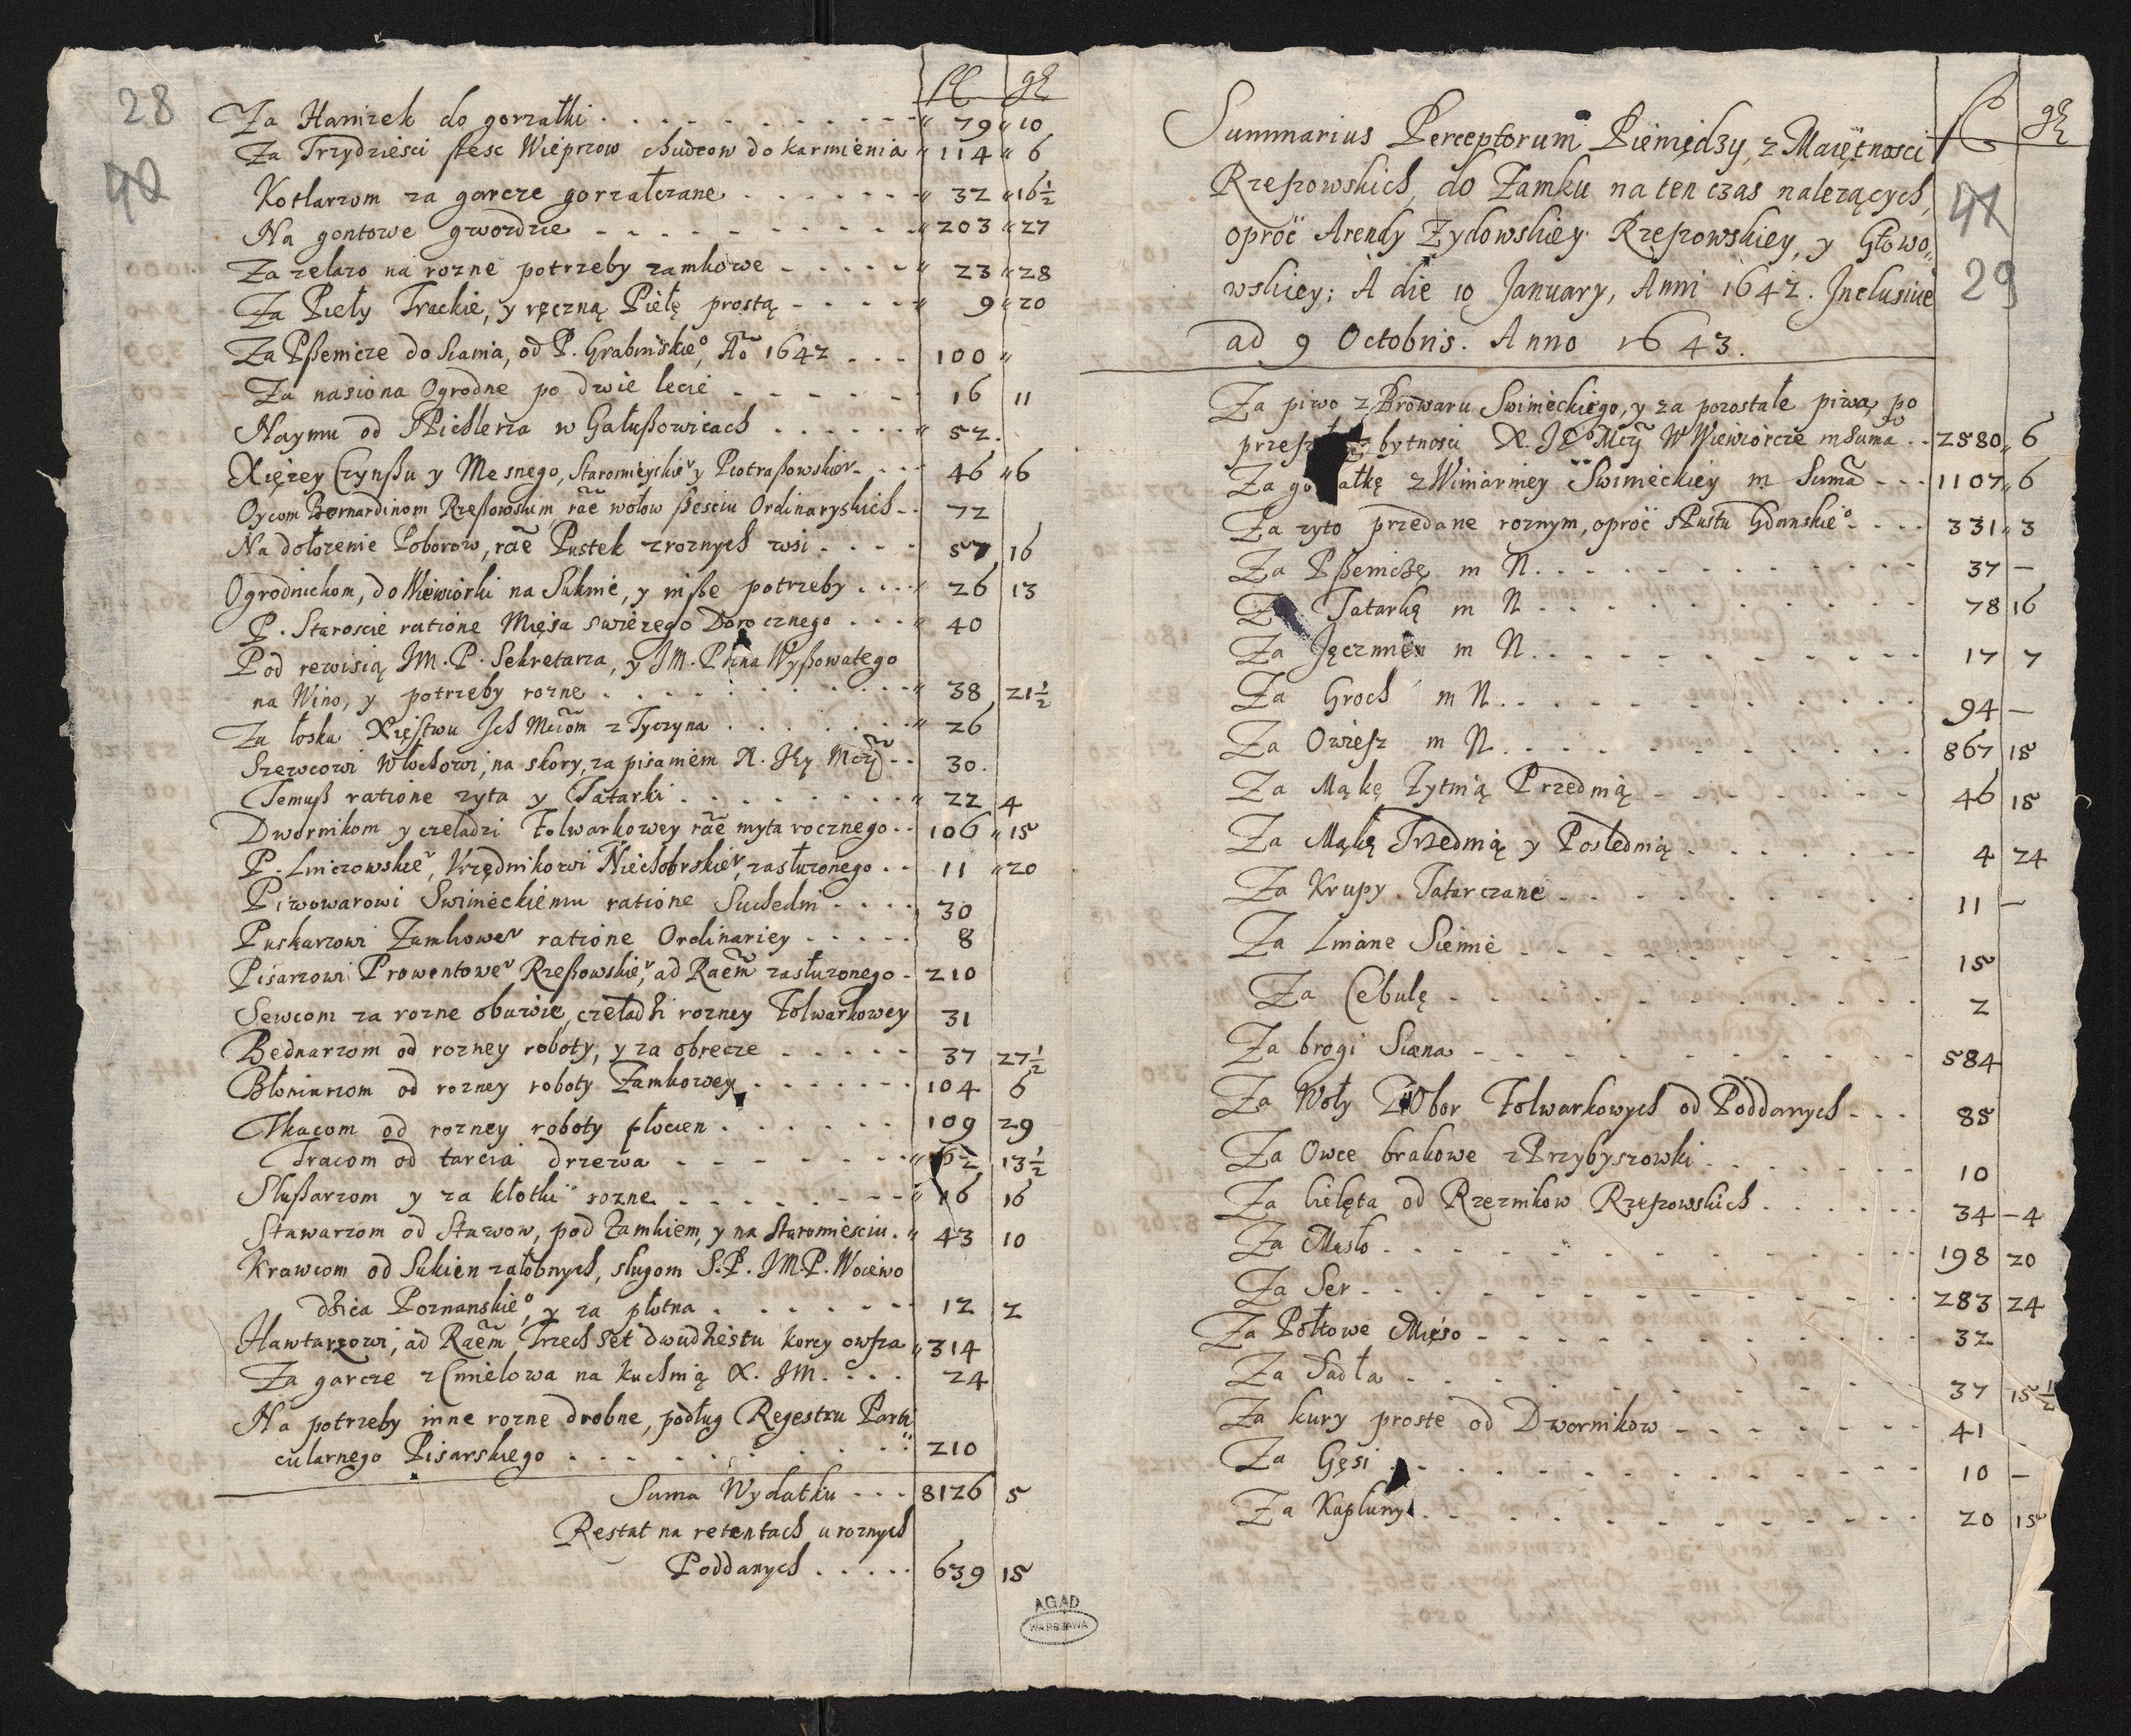 28
40
fl gr
Za Hanizek do gorzałki . . . . . . . . 79 10
Za Trzydziesci szesc Wieprzow chudcow do karmienia 114 6
Kotlarzom za garcze gorzałczane . . . . . . 32 16½
Na gontowe gwozdzie . . . . . . . . 203 27
Za zelazo na rozne potrzeby zamkowe . . . . . 23 28
Za Pieły Trackie, y ręczną Piełę prostą . . . . 9 20
Za Pßenicze do siania, od P. Grabinskieo, Ao 1642 . . . 100
Za nasiona Ogrodne po dwie lecie . . . . . . 16 11
Naymu od Spichlerza w Gałußowicach . . . . . . 52.
Xiężey Czynßu y Mesnego, Staromieyskier y Piotraßowskier . . . 46 6
Oycom Bernardinom Rzeßowskim rãe wołow ßesciu Ordinaryskich . . 72
Na dołozenie Poborow, rãe Pustek z roznych wsi . . . . 57 16
Ogrodnickom, do Wiewiorki na Suknie, y insße potrzeby . . . . 26 13
P. Staroscie ratione Mięsa swiezego Dorocznego . . . 40
Pod rewisią JM. P. Sekretarza, y JM. Pana Wyßowatego
na Wino, y potrzeby rozne . . . . . . . . . 38 21½
Za łoska Xięstwu Jch Mciom z Tyczyna . . . . . . . 26
Szewcowi Włochowi, na skory, za pisaniem X. Jey Mczi . . 30.
Temuß ratione zyta y Tatarki . . . . . . . . 22 4
Dwornikom y czeladzi Folwarkowey rãe myta rocznego . . 106 15
P. Liniczowskier, Vrzędnikowi Niechobrskier, zasłuzonego . . 11 20
Piwowarowi Swinieckiemu ratione Suchedni . . . . 30
Puskarzowi Zamkower ratione Ordinariey . . . . . 8
Pisarzowi Prowentower Rzeßowskier, ad Raem zasłuzonego . 210
Sewcom za rozne obuwie, czeladzi rozney Folwarkowey 31
Bednarzom od rozney roboty, y za obręcze . . . . . 37 27½
Błoniarzom od rozney roboty Zamkowey . . . . . . 104 6
Tkacom od rozney roboty płocien . . . . . . 109 29
Tracom od tarcia drzewa . . . . . . . 62 13½
Slußarzom y za kłotki rozne . . . . . . . 16 16
Stawarzom od Stawow, pod Zamkiem, y na Staromiesciu . 43 10
Krawcom od Sukien załobnych, slugom S.P. JM.P. Woiewo
dzica Poznanskieo, y za płotna . . . . . . . 12 2
Hawtarzowi, ad Raem Trzech set dwudziestu korcy owsza 314
Za garcze z Cmielowa na kuchnią X. JM. . . . 24
Na potrzeby inne rozne drobne, podług Regestru Parti
cularnego Pisarskiego . . . . . . . . . 210
Suma Wydatku . . . 8126 5
Restat na retentach u roznych
Poddanych . . . . . 639 15
AGAD
WARSZAWA
fl gr
41
29
Summarius Perceptorum Pieniędzy, z Maiętnosci
Rzeszowskich, do Zamku na ten czas nalezących,
oproc Arendy Zydowskiey Rzeszowskiey, y Głowo,,
wskiey; A die 10 January, Anni 1642. Jnclusiue
ad 9 Octobris. Anno 1643.
Za piwo z Browaru Swinieckiego, y za pozostałe piwa, po
przesz bytnosci X. JEo Mczi W Wiewiorcze in Suma . . 2580 6
Za go ałkę z Winiarniey Swinieckiey in Suma . . . 1107 6
Za zyto przedane roznym, oproc sPustu Gdanskieo . . . . 331 3
Za Pßeniczę in N. . . . . . . . . . 37 —
Za Tatarkę in N. . . . . . . . . . 78 16
Za Jęczmien in N. . . . . . . . . 17 7
Za Groch in N. . . . . . . . . . 94 —
Za Owiesz in N. . . . . . . . . . 867 15
Za Mąkę Zytnią Przednią . . . . . . . 46 15
Za Mąkę Trzednią y Poslednią . . . . . . 4 24
Za Krupy Tatarczane . . . . . . . . . 11 —
Za Lniane Siemie . . . . . . . . . 15
Za Cebulę . . . . . . . . . . . 2
Za brogi Siana . . . . . . . . . . 584
Za Woły z Obor Folwarkowych od Poddanych . . . 85
Za Owce brakowe z Przybyszowki . . . . . . . 10
Za Cielęta od Rzeznikow Rzeszowskich . . . . . . 34 – 4
Za Masło . . . . . . . . . . . . 198 20
Za Ser . . . . . . . . . . . . . 283 24
Za Połtowe Mięso . . . . . . . . . . 32
Za Sadła . . . . . . . . . . . . 37 15½
Za kury proste od Dwornikow . . . . . . . 41
Za Gęsi . . . . . . . . . . . . 10 —
Za Kapłuny . . . . . . . . . . . 20 15